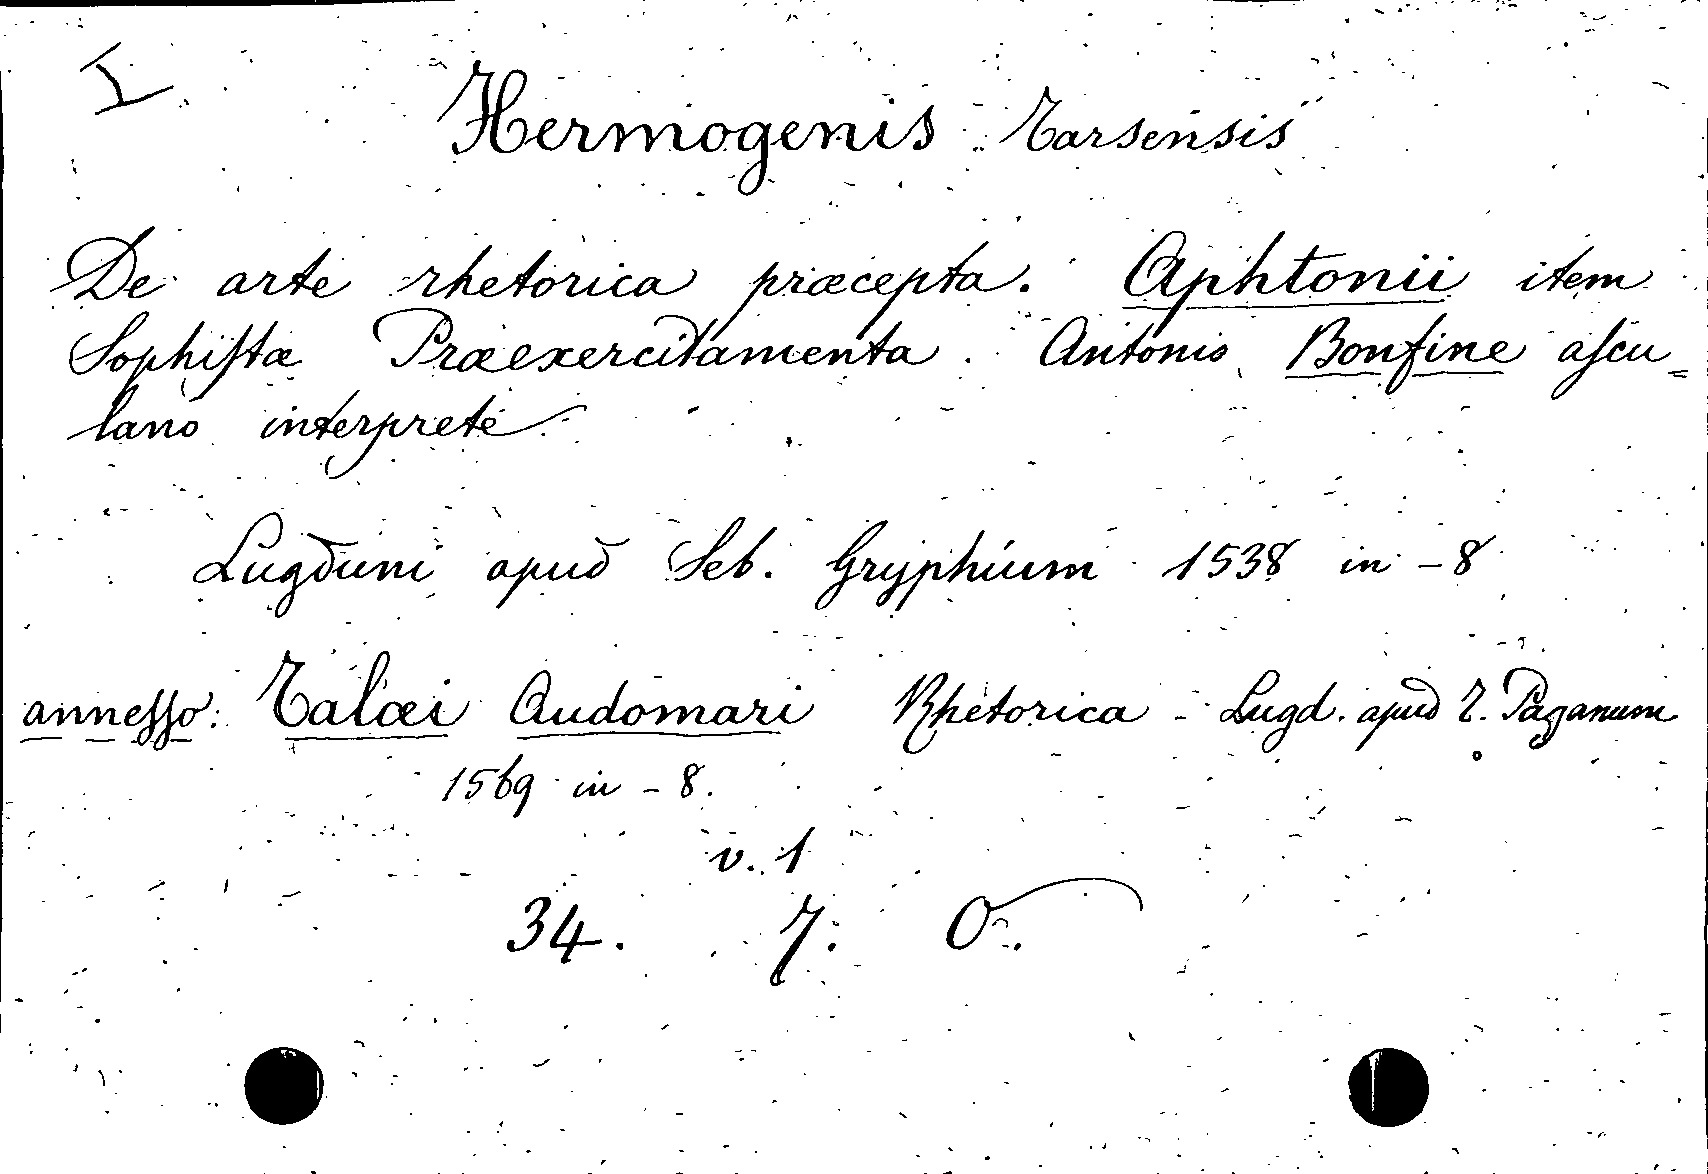 I
Hermogenis Tarsensis
De arte rhetorica præcepta. Aphtonii item
Sophiſtæ Præexercitamenta. Antonio Bonfine aſcu=
lano interprete
Lugduni apud Seb. Gryphium 1538 in-8
anneſſo: Talæi Audomari Rhetorica - Lugd. apud T. Paganum
1569 in-8.
v. 1
34. 7. O.